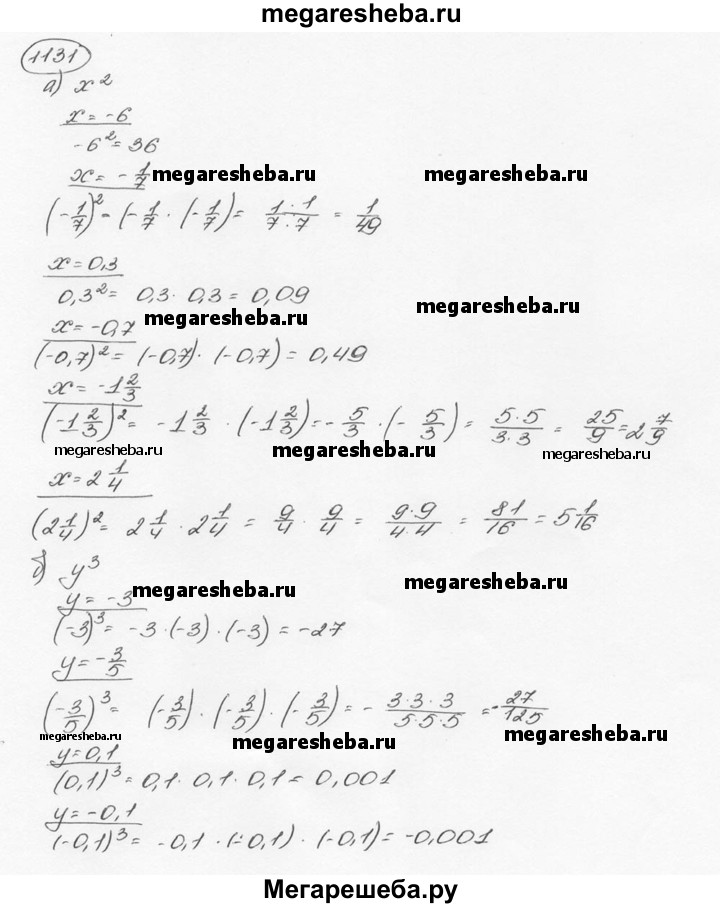 megaresheba.ru
1131
а) x²
x = -6
-6² = 36
x = - 1/7 megaresheba.ru megaresheba.ru
(-1/7)² = (-1/7 · (-1/7) = 1·1/7·7 = 1/49
x = 0,3
0,3² = 0,3 · 0,3 = 0,09 megaresheba.ru
x = -0,7 megaresheba.ru
(-0,7)² = (-0,7) · (-0,7) = 0,49
x = -1 2/3
(-1 2/3)² = -1 2/3 · (-1 2/3) = - 5/3 · (- 5/3) = 5·5/3·3 = 25/9 = 2 7/9
megaresheba.ru megaresheba.ru megaresheba.ru
x = 2 1/4
(2 1/4)² = 2 1/4 · 2 1/4 = 9/4 · 9/4 = 9·9/4·4 = 81/16 = 5 1/16
б) y³
y = -3 megaresheba.ru megaresheba.ru
(-3)³ = -3 · (-3) · (-3) = -27
y = - 3/5
(-3/5)³ = (-3/5) · (-3/5) · (-3/5) = - 3·3·3/5·5·5 = -27/125
megaresheba.ru megaresheba.ru megaresheba.ru
y = 0,1
(0,1)³ = 0,1 · 0,1 · 0,1 = 0,001
y = -0,1
(-0,1)³ = -0,1 · (-0,1) · (-0,1) = -0,001
Мегарешеба.ру